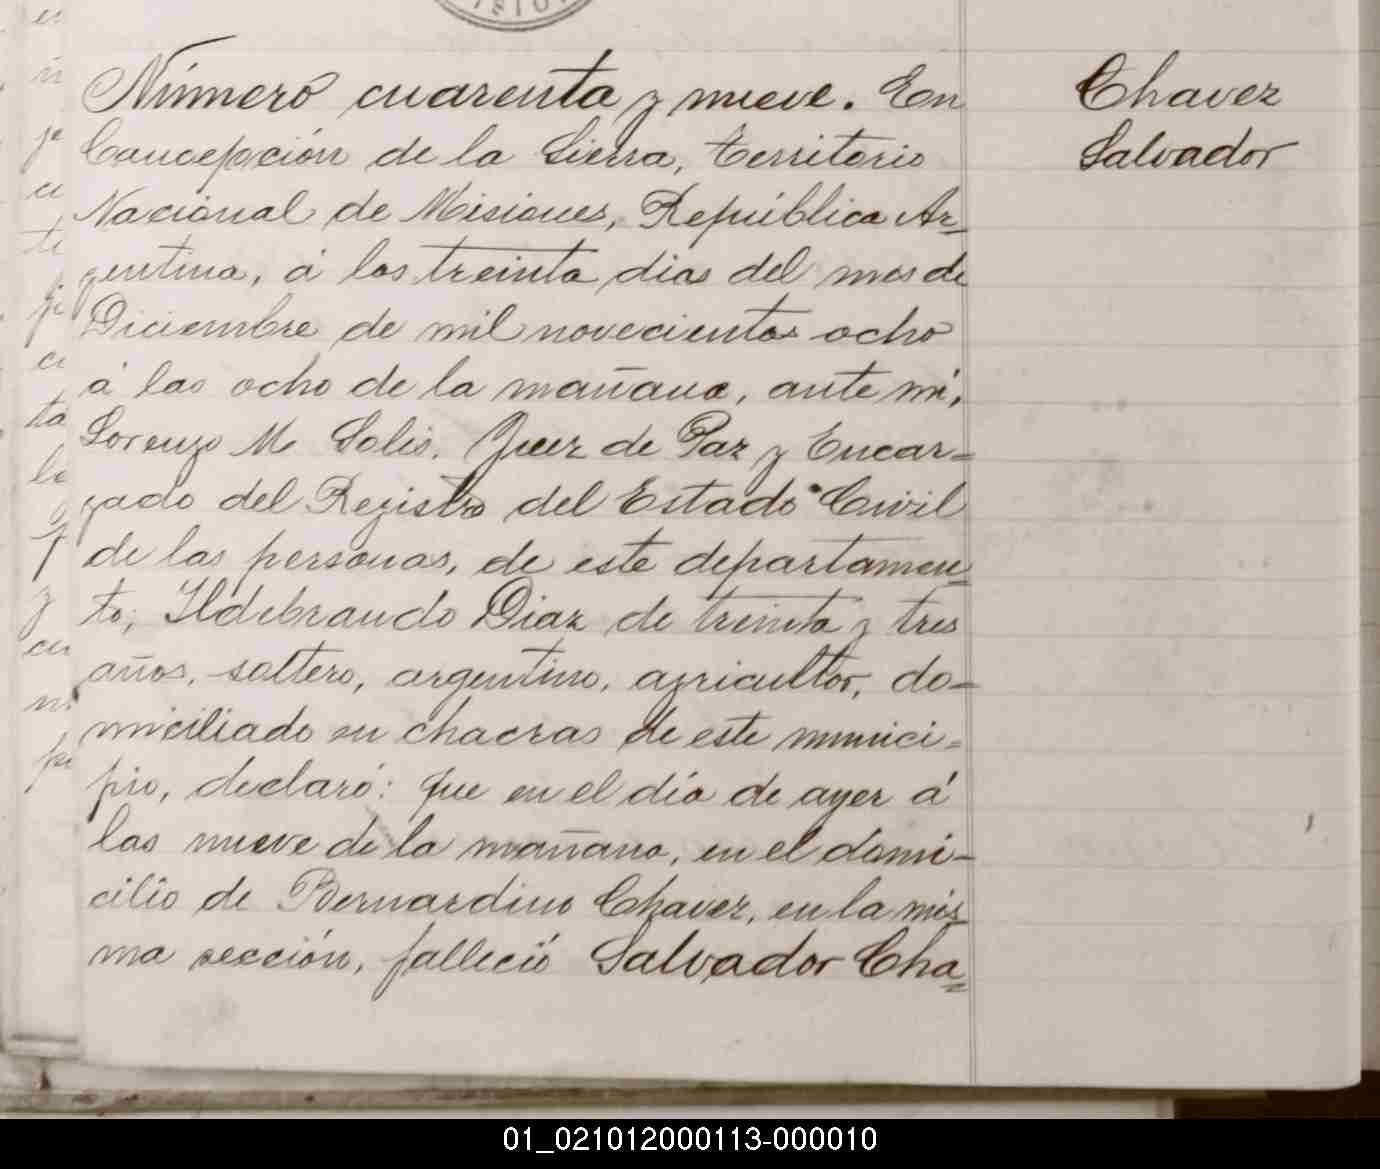 Número cuarenta y nueve. En
Concepción de la Sierra, territorio
Nacional de Misiones, República Ar-
gentina, á los treinta dias del mes de
Diciembre de mil novecientos ocho
á las ocho de la mañana, ante mi,
Lorenzo M Solis. Juez de Paz y Encar=
gado del Registro del Estado Civil
de las personas, de este departamen-
to, Ildebrando Diaz de treinta y tres
años, soltero, argentino, agricultor, do-
miciliado en chacras de este munici-
pio, declaró: que en el día de ayer á
las nueve de la mañana, en el domi-
cilio de Bernardino Chavez, en la mis-
ma sección, falleció Salvador Cha=
Chavez
Salvador
01_021012000113-000010